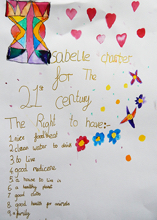 Isabelle charter
for The
21st Century
The Right to have:-
1 nice food/meal
2 clean water to drink
3 to live
4 good medicine
5 a house to live in
6 a healthy planet
7 good
8 good
9 family